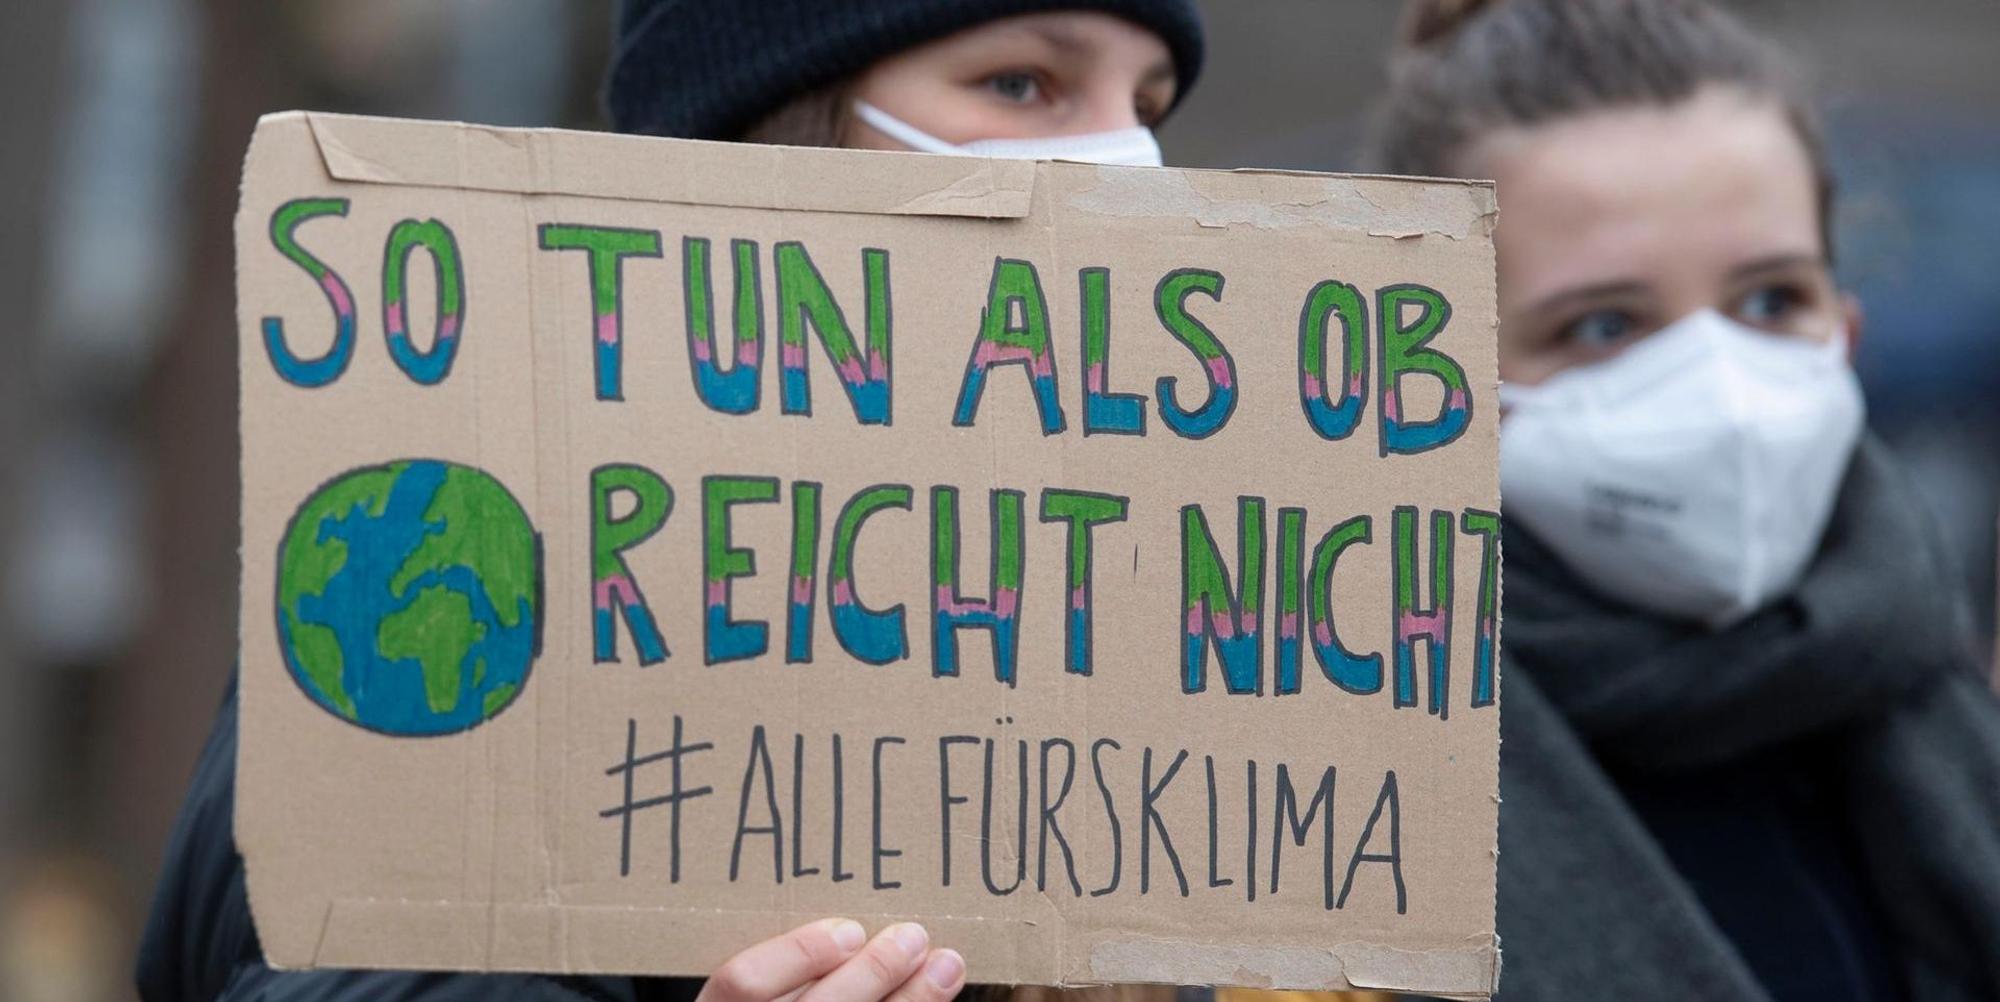 SO TUN ALS OB
REICHT NICHT
#ALLE FÜRS KLIMA